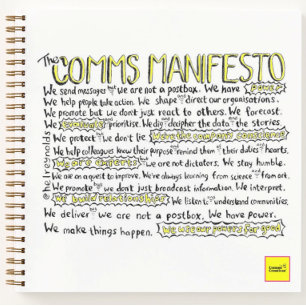 The COMMS MANIFESTO
We send messages but we are not a postbox. We have power
We help people take action. We shape and direct our organisations.
We promote but we don't just react to others. We forecast.
We prioritise. We dig, decipher the data and the stories.
We protect but we don't lie We're the company conscience
We help colleagues know their purpose, remind them of their duties and hearts.
We are experts but we are not dictators. We stay humble.
We are on a quest to improve. We're always learning from science and from art.
We promote but we don't just broadcast information. We interpret.
We build relationships We listen to and understand communities.
We deliver but we are not a postbox. We have power.
We make things happen. We use our powers for good
@helreynolds
Comms Creatives